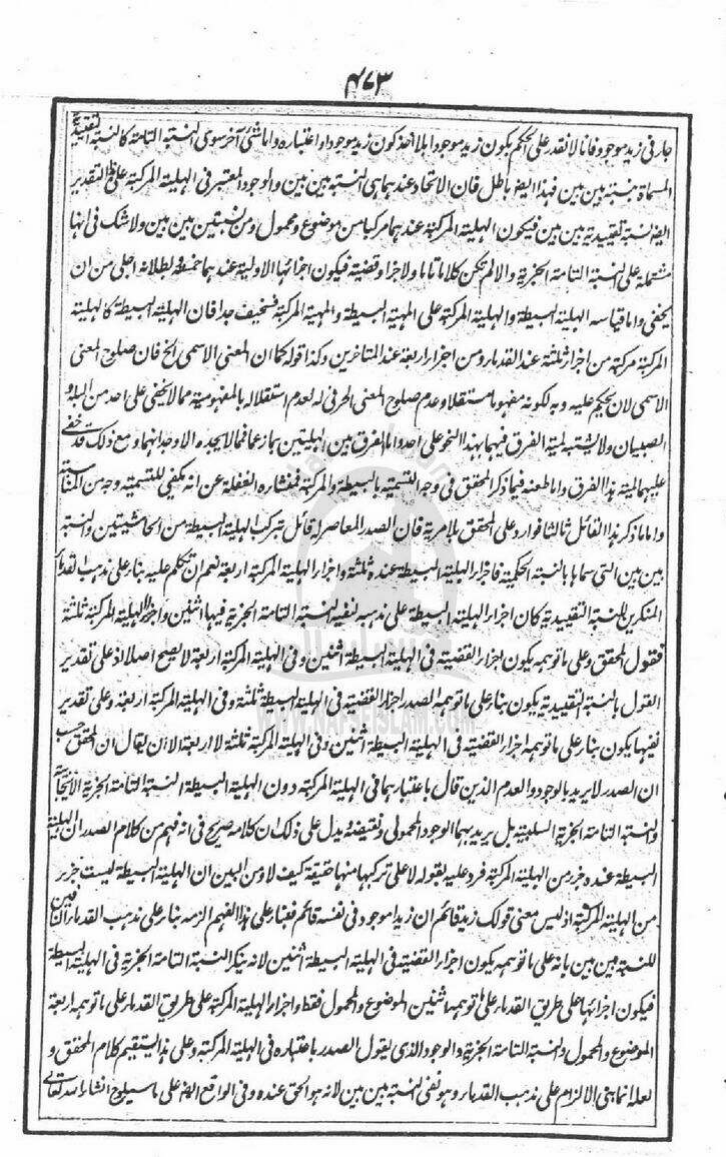 ۴۷۳
جار فی زید موجود فانا لا نقدر علی الحکم بکون زید موجودا بلا اخذ کون زید موجودا و اعتباره و اما شئ آخر سوی النسبة التامة کالنسبة التقییدیة
المسماة بنسبة بین بین فهذا ایضا باطل فان الاتحاد عندهما هی النسبة بین بین والوجود المعتبر فی الهلیة المرکبة علی هذا التقدیر
ایضا نسبة تقییدیة بین بین فیکون الهلیة المرکبة عندهما مرکبا من موضوع و محمول و من نسبتین بین بین ولا شک فی انها
مشتملة علی النسبة التامة الخبریة والا لم تکن کلاما تاما ولا جزاء و قضیة فیکون اجزائها الاولیة عندهما خمسة و بطلانه اجلی من ان
یخفی و اما قیاسه الهلیة البسیطة والهلیة المرکبة علی المهیة البسیطة والمهیة المرکبة فسخیف جدا فان الهلیة البسیطة کالهلیة
المرکبة مرکبة من اجزاء ثلثة عند القدماء و من اجزاء اربعة عند المتاخرین و کذا قوله کما ان المعنی الاسمی الخ فان صلوح المعنی
الاسمی لان یحکم علیه و به لکونه مفهوما مستقلا و عدم صلوح المعنی الحرفی له لعدم استقلاله بالمفهومیة مما لا یخفی علی احد من البله و
الصبیان ولا یشتبه لمیة الفرق فیهما بهذا النحو علی احد و اما الفرق بین الهلیتین بما زعما فمما لا یجده الا وجدانهما و مع ذلک قد خفی
علیهما لمیة هذا الفرق و اما طعنه فیما ذکر المحقق فی وجه التسمیة بالبسیطة والمرکبة فمنشاره الغفلة عن انه یکفی للتسمیة وجه من المناسبة
و اما ما ذکر هذا القائل ثالثا فوارد علی المحقق بلا مریة فان الصدر المعاصر له قائل بترکب الهلیة البسیطة من الحاشیتین والنسبة
بین بین التی سماها بالنسبة الحکمیة فاجزاء الهلیة البسیطة عنده ثلثة و اجزاء الهلیة المرکبة اربعة نعم ان تکلم علیه بناء علی مذهب القدماء
المنکرین للنسبة التقییدیة کان اجزاء الهلیة البسیطة علی مذهبه لنفیه النسبة التامة الخبریة فیها اثنین و اجزاء الهلیة المرکبة ثلثة
فقول المحقق و علی ما توهمه یکون اجزاء القضیة فی الهلیة البسیطة اثنین و فی الهلیة المرکبة اربعة لا یصح اصلا اذ علی تقدیر
القول بالنسبة التقییدیة یکون بناء علی ما توهمه الصدر اجزاء القضیة فی الهلیة البسیطة ثلثة و فی الهلیة المرکبة اربعة و علی تقدیر
نفیها یکون بناء علی ما توهمه اجزاء القضیة فی الهلیة البسیطة اثنین و فی الهلیة المرکبة ثلثة لا اربعة الا ان یقال ان المحقق حسب
ان الصدر لا یرید بالوجود والعدم الذین قال باعتبارهما فی الهلیة المرکبة دون الهلیة البسیطة النسبة التامة الخبریة الایجابیة
والنسبة التامة الخبریة السلبیة بل یرید بهما الوجود المحمولی و نقیضه و یدل علی ذلک ان کلامه صریح فی انه فهم من کلام الصدر ان الهلیة
البسیطة عنده جزء من الهلیة المرکبة فرد علیه بقوله لا علی ترکبها منها حقیقة کیف لا و من البین ان الهلیة البسیطة لیست جزء
من الهلیة المرکبة اذ لیس معنی قولک زید قائم ان زیدا موجود فی نفسه قائم فبناء علی هذا الفهم الزمه بناء علی مذهب القدماء النافین
للنسبة بین بین بانه علی ما توهمه یکون اجزاء القضیة فی الهلیة البسیطة اثنین لانه ینکر النسبة التامة الخبریة فی الهلیة البسیطة
فیکون اجزائها علی طریق القدماء علی ما توهمه اثنین الموضوع والمحمول فقط و اجزاء الهلیة المرکبة علی طریق القدماء علی ما توهمه اربعة
الموضوع والمحمول والنسبة التامة الخبریة والوجود الذی یقول الصدر باعتباره فی الهلیة المرکبة و علی هذا یستقیم کلام المحقق و
لعله انما بنی الالزام علی مذهب القدماء و هو نفی النسبة بین بین لانه هو الحق عنده و فی الواقع ایضا علی ما سیلوح انشاء الله تعالی
WWW.NAFSEISLAM.COM